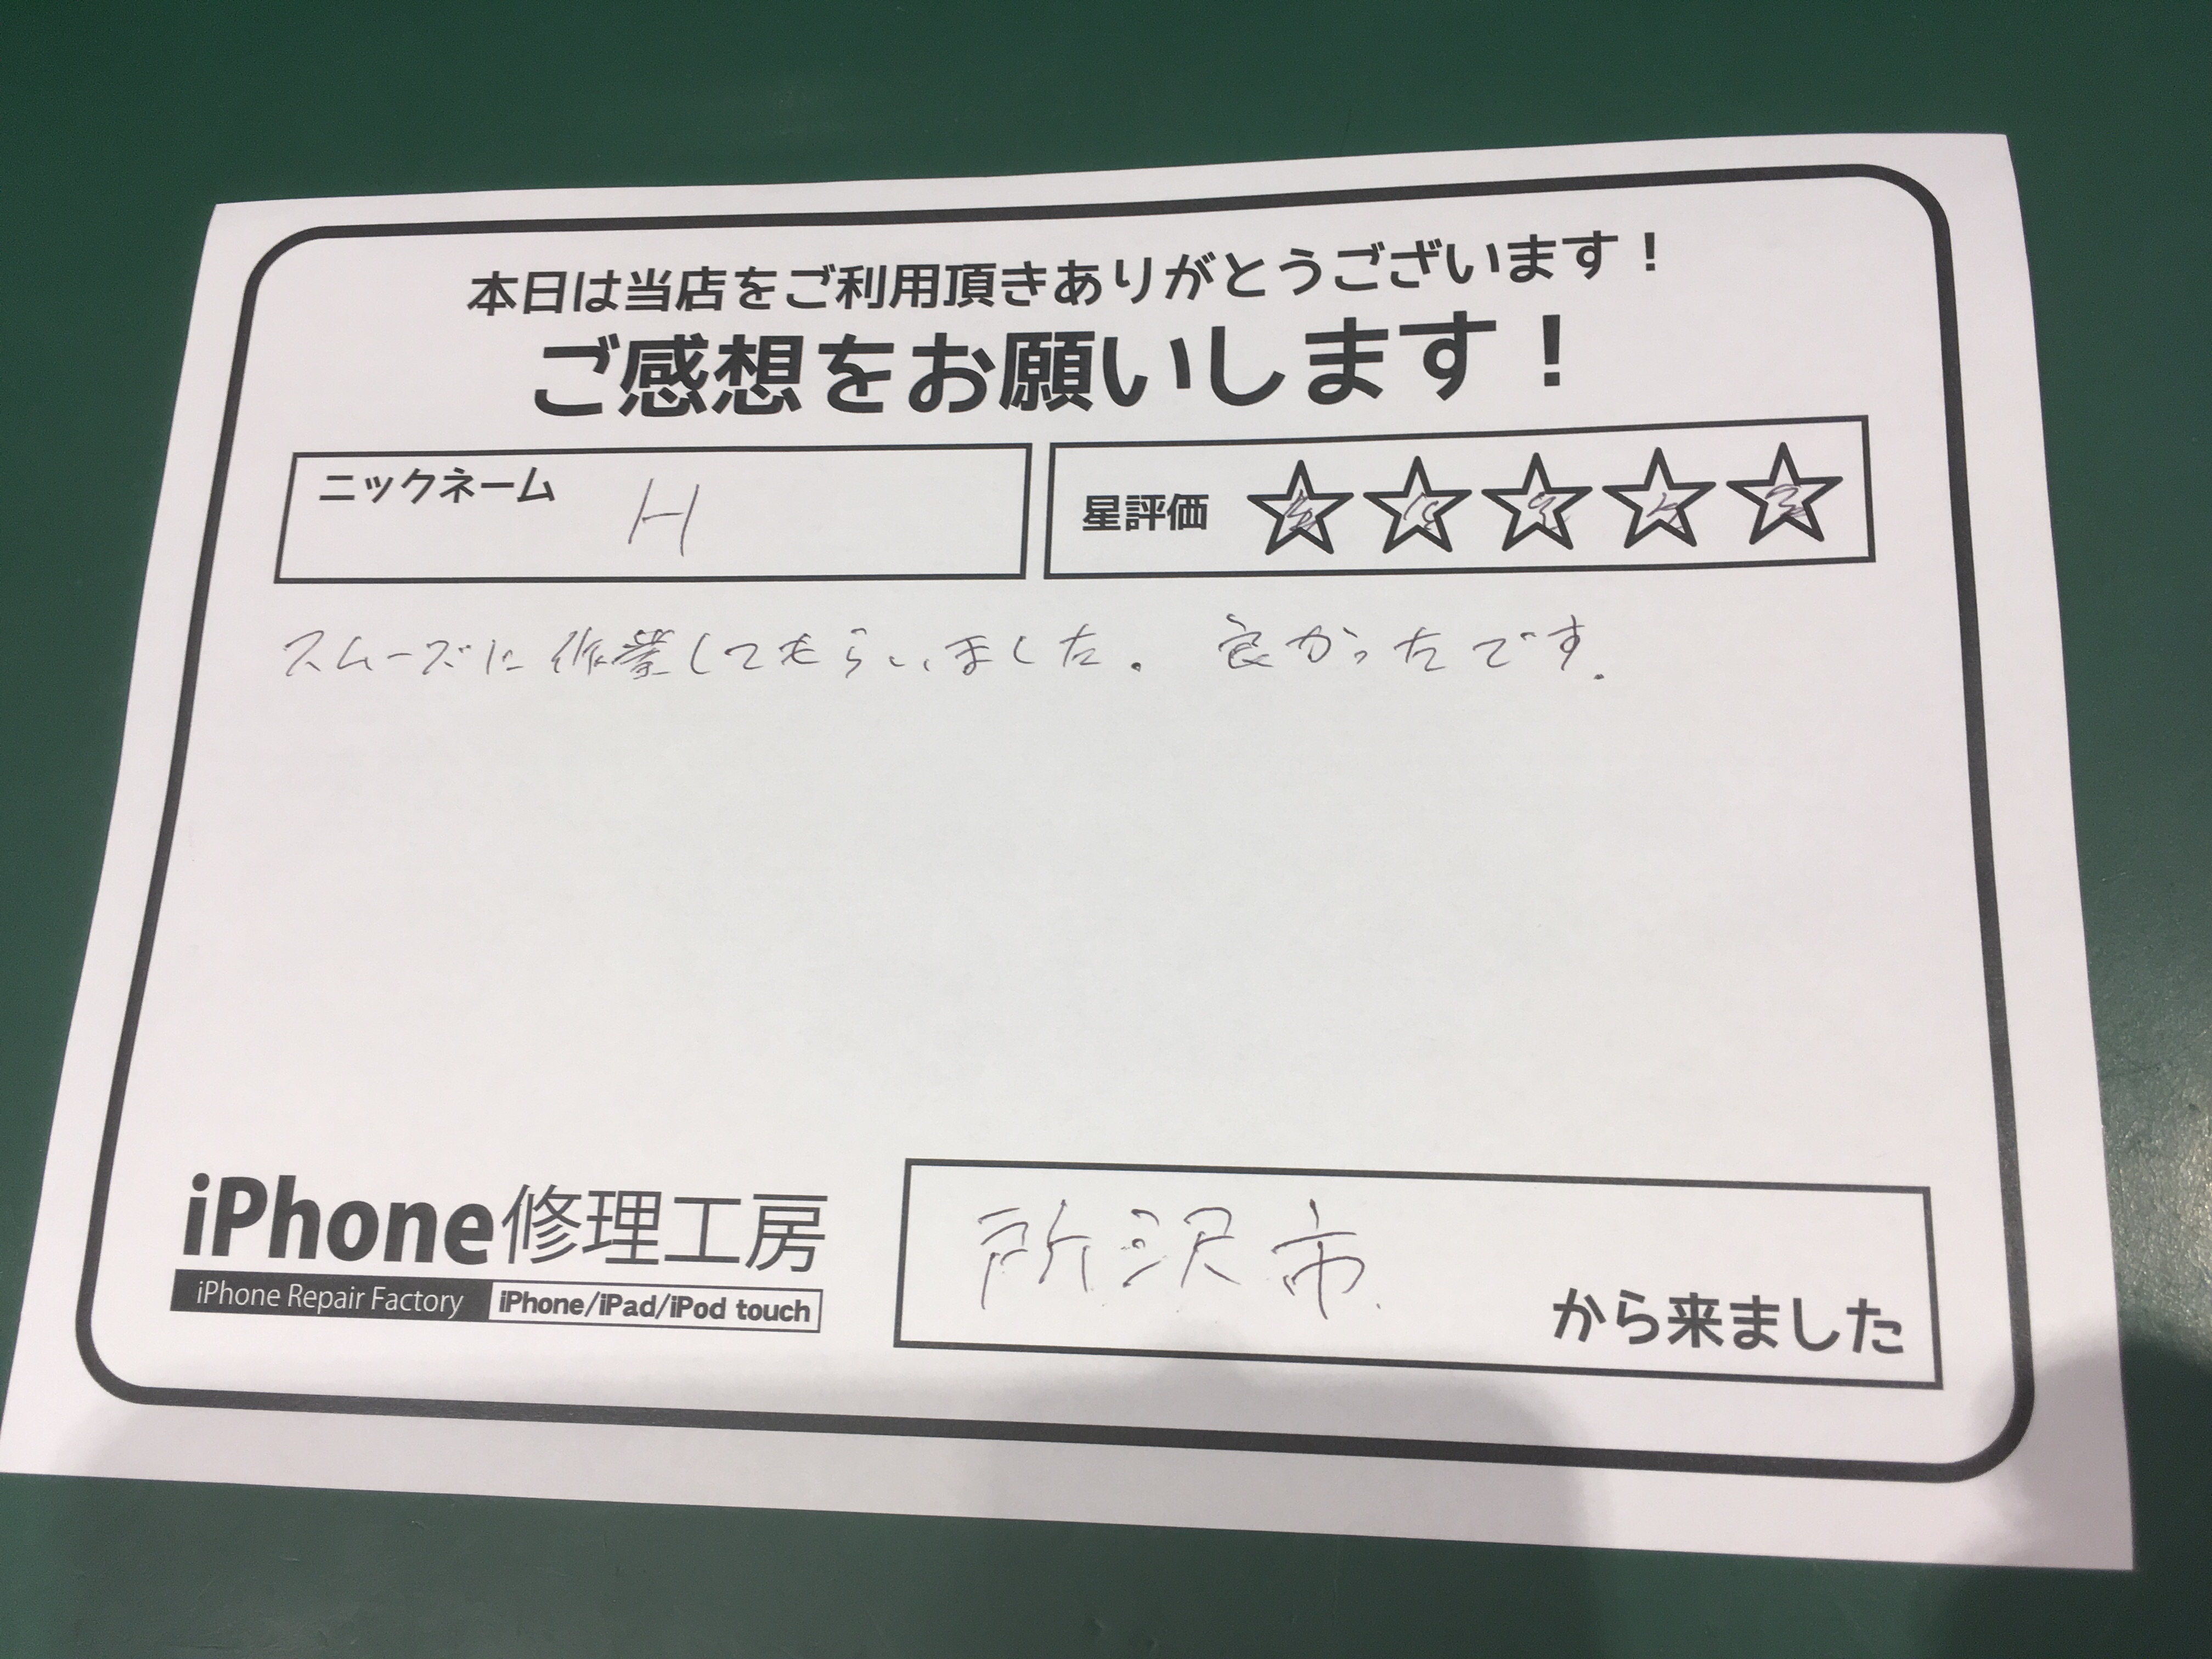 本日は当店をご利用頂きありがとうございます！
ご感想をお願いします！
ニックネーム H
星評価 ☆☆☆☆☆
スムーズに作業してもらいました。良かったです.
iPhone修理工房
iPhone Repair Factory iPhone/iPad/iPod touch
所沢市 から来ました